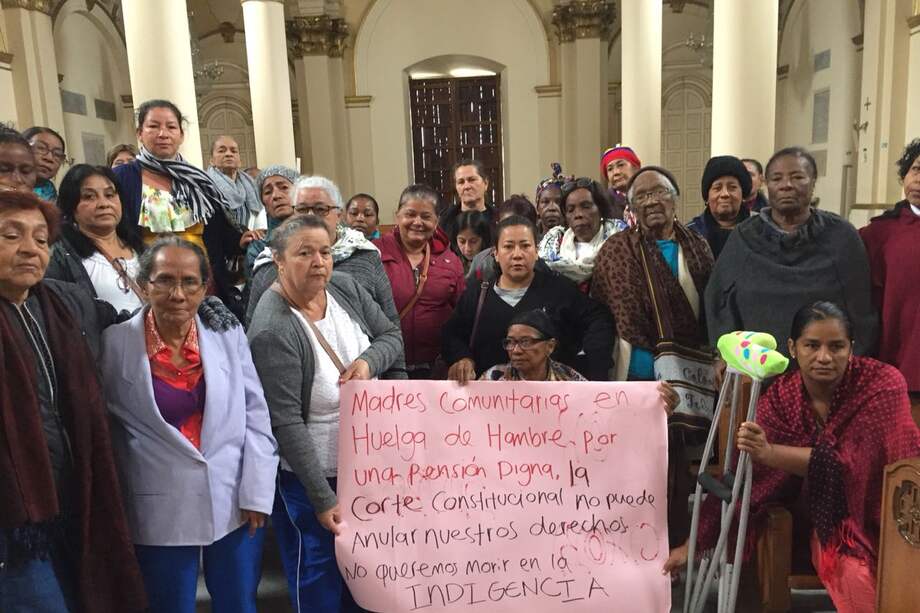 Madres Comunitarias en
Huelga de Hambre. por
una Pensión Digna, la
Corte Constitucional no puede
Anular nuestros derechos
No queremos morir en la
INDIGENCIA